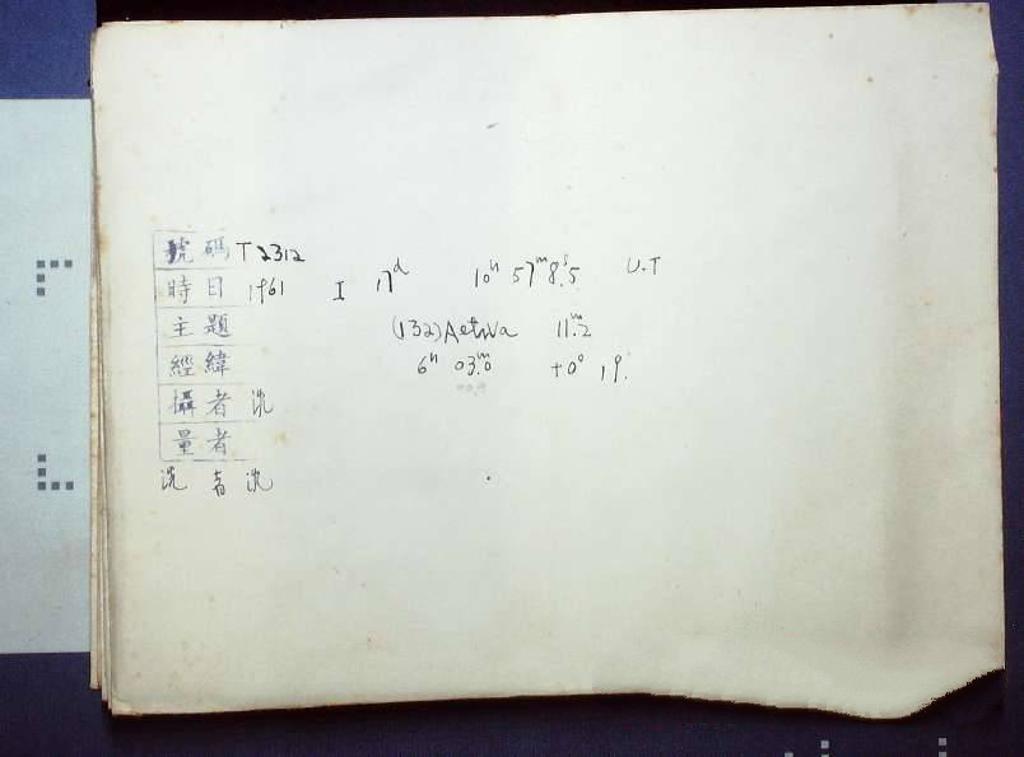 號碼 T2312
時日 1961 I 17ᵈ 10ʰ 57ᵐ 8ˢ.5 U.T
主題 (132) Aethra 11ᵐ.2
經緯 6ʰ 03ᵐ.0 +0° 19.
攝者 沈
量者
洗者 沈